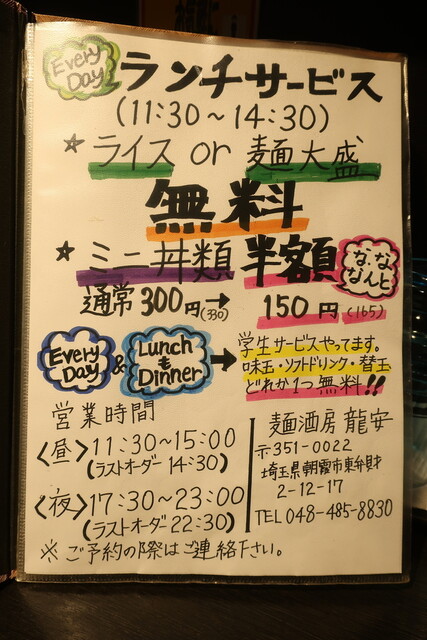 Every Day ランチサービス
(11:30～14:30)
★ ライス or 麺大盛
無料
★ ミニ丼類 半額 なななんと
通常 300円(330) → 150円(165)
Every Day & Lunch も Dinner → 学生サービスやってます。
味玉・ソフトドリンク・替玉
どれか1つ無料!!
営業時間
〈昼〉11:30～15:00
(ラストオーダー 14:30)
〈夜〉17:30～23:00
(ラストオーダ 22:30)
※ ご予約の際はご連絡下さい。
麺酒房 龍安
〒351-0022
埼玉県朝霞市東弁財
2-12-17
TEL 048-485-8830